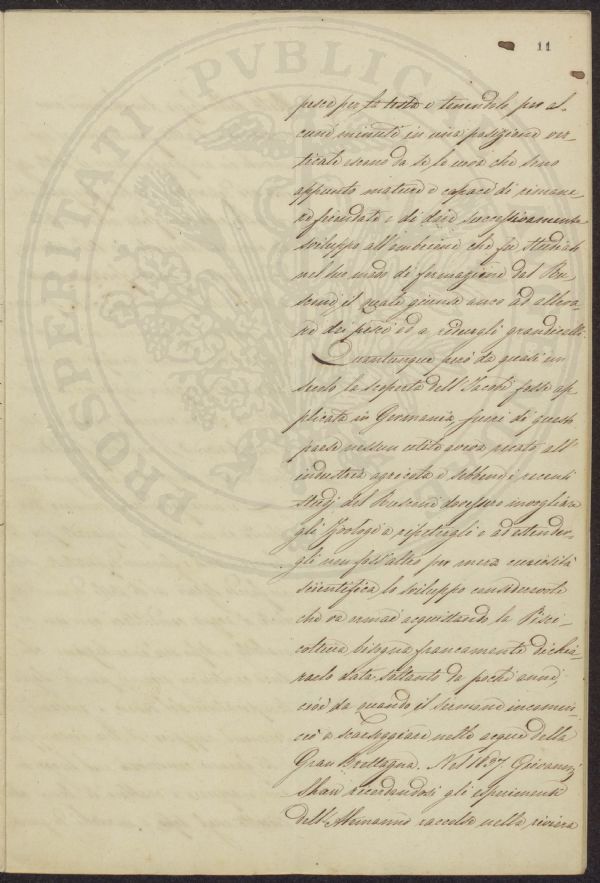 11
pesce per la testa e tenendolo per al-
cuni minuti in una posizione ver-
ticale escono da se le uova che sono
appunto mature e capaci di rimane-
re fecondate e di dare successivamente
sviluppo all'embrione che fu studiato
nel suo modo di formazione dal Ru-
sconi, il quale giunse anco ad alleva-
re dei pesci ed a ridurgli grandicelli.
Quantunque però da quasi un
secolo la scoperta dell'Jacobi fosse ap-
plicata in Germania, fuori di questo
paese nessun utile aveva recato all'
industria agricola e sebbene i recenti
studj del Rusconi dovessero invogliare
gli Zoologi a ripetergli e ad estender-
gli non foss'altro per mera curiosità
scientifica, lo sviluppo considerevole
che va ormai acquistando la Pisci-
coltura bisogna francamente dichia-
rarlo data soltanto da pochi anni,
cioè da quando il Sermone incomin-
ciò a scarseggiare nelle acque della
Gran Brettagna. Nel 1837. Giovanni
Shaw ricordandosi gli esperimenti
dell'Alemanno raccolse nella riviera
PROSPERITATI PVBLICAE